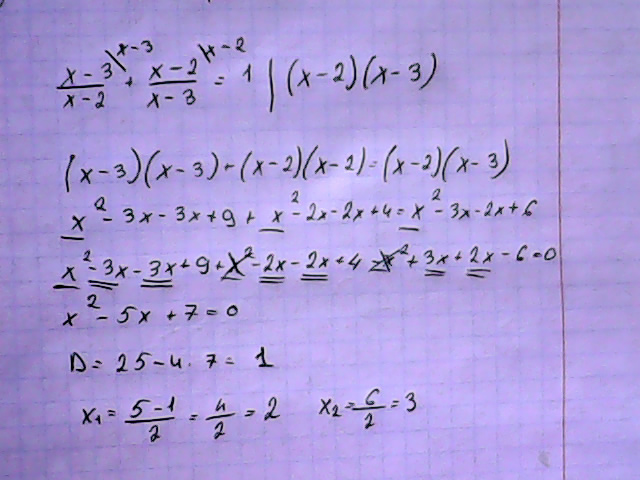 x-3/x-2 \x-3 + x-2/x-3 \x-2 = 1 | (x-2)(x-3)
(x-3)(x-3)+(x-2)(x-2)=(x-2)(x-3)
x²-3x-3x+9+x²-2x-2x+4=x²-3x-2x+6
x²-3x-3x+9+x²-2x-2x+4-x²+3x+2x-6=0
x²-5x+7=0
D=25-4·7=1
x₁=5-1/2=4/2=2 x₂=6/2=3